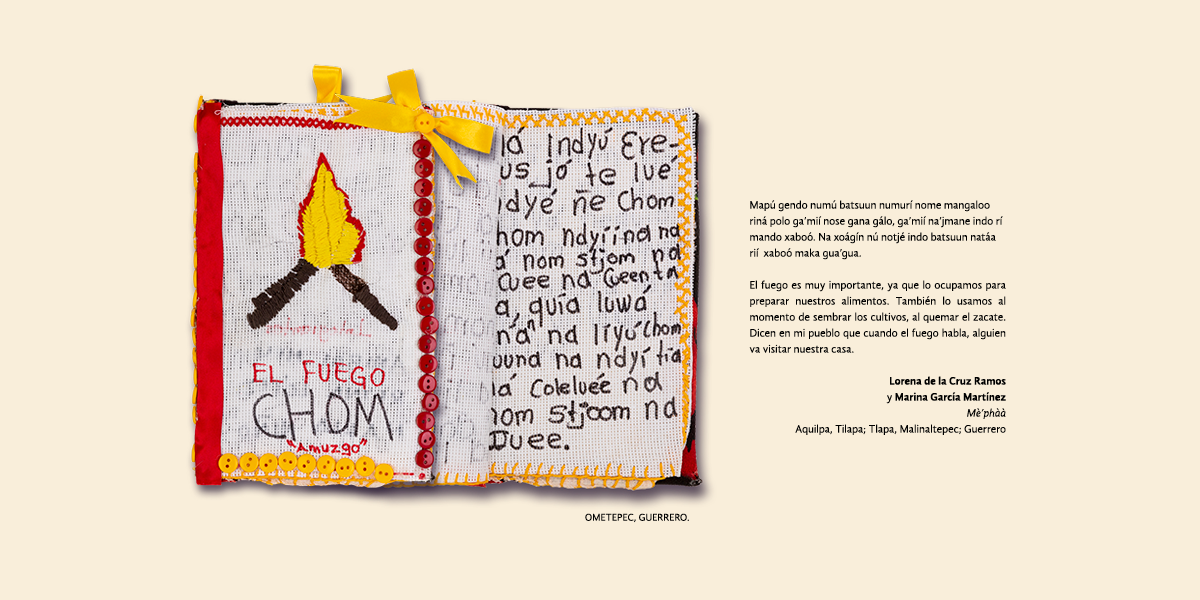 EL FUEGO
CHOM
"Amuzgo"
indyú Ere-
jó te lué
ñe Chom
ndyíína na
nom stjom na
na Cwenta
quia luwá
na líyú chom
na ndyí tia
Coleluée na
stjoom na
OMETEPEC, GUERRERO.
Mapú gendo numú batsuun numurí nome mangaloo
riná polo ga’mií nose gana gálo, ga’mií na’jmane indo rí
mando xaboó. Na xoágín nú notjé indo batsuun natáa
rií xaboó maka gua’gua.
El fuego es muy importante, ya que lo ocupamos para
preparar nuestros alimentos. También lo usamos al
momento de sembrar los cultivos, al quemar el zacate.
Dicen en mi pueblo que cuando el fuego habla, alguien
va visitar nuestra casa.
Lorena de la Cruz Ramos
y Marina García Martínez
Mè’phàà
Aquilpa, Tilapa; Tlapa, Malinaltepec; Guerrero